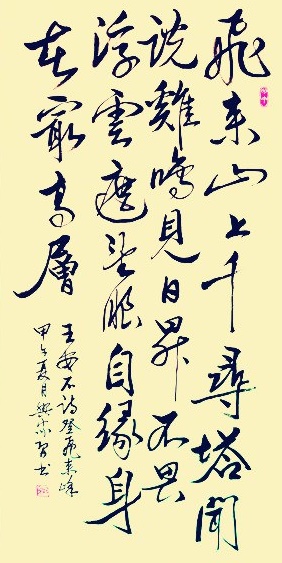 飛来山上千尋塔聞
說雞鳴見日昇不畏
浮雲遮望眼自緣身
在最高層
王安石詩登飛来峰
甲午夏月書